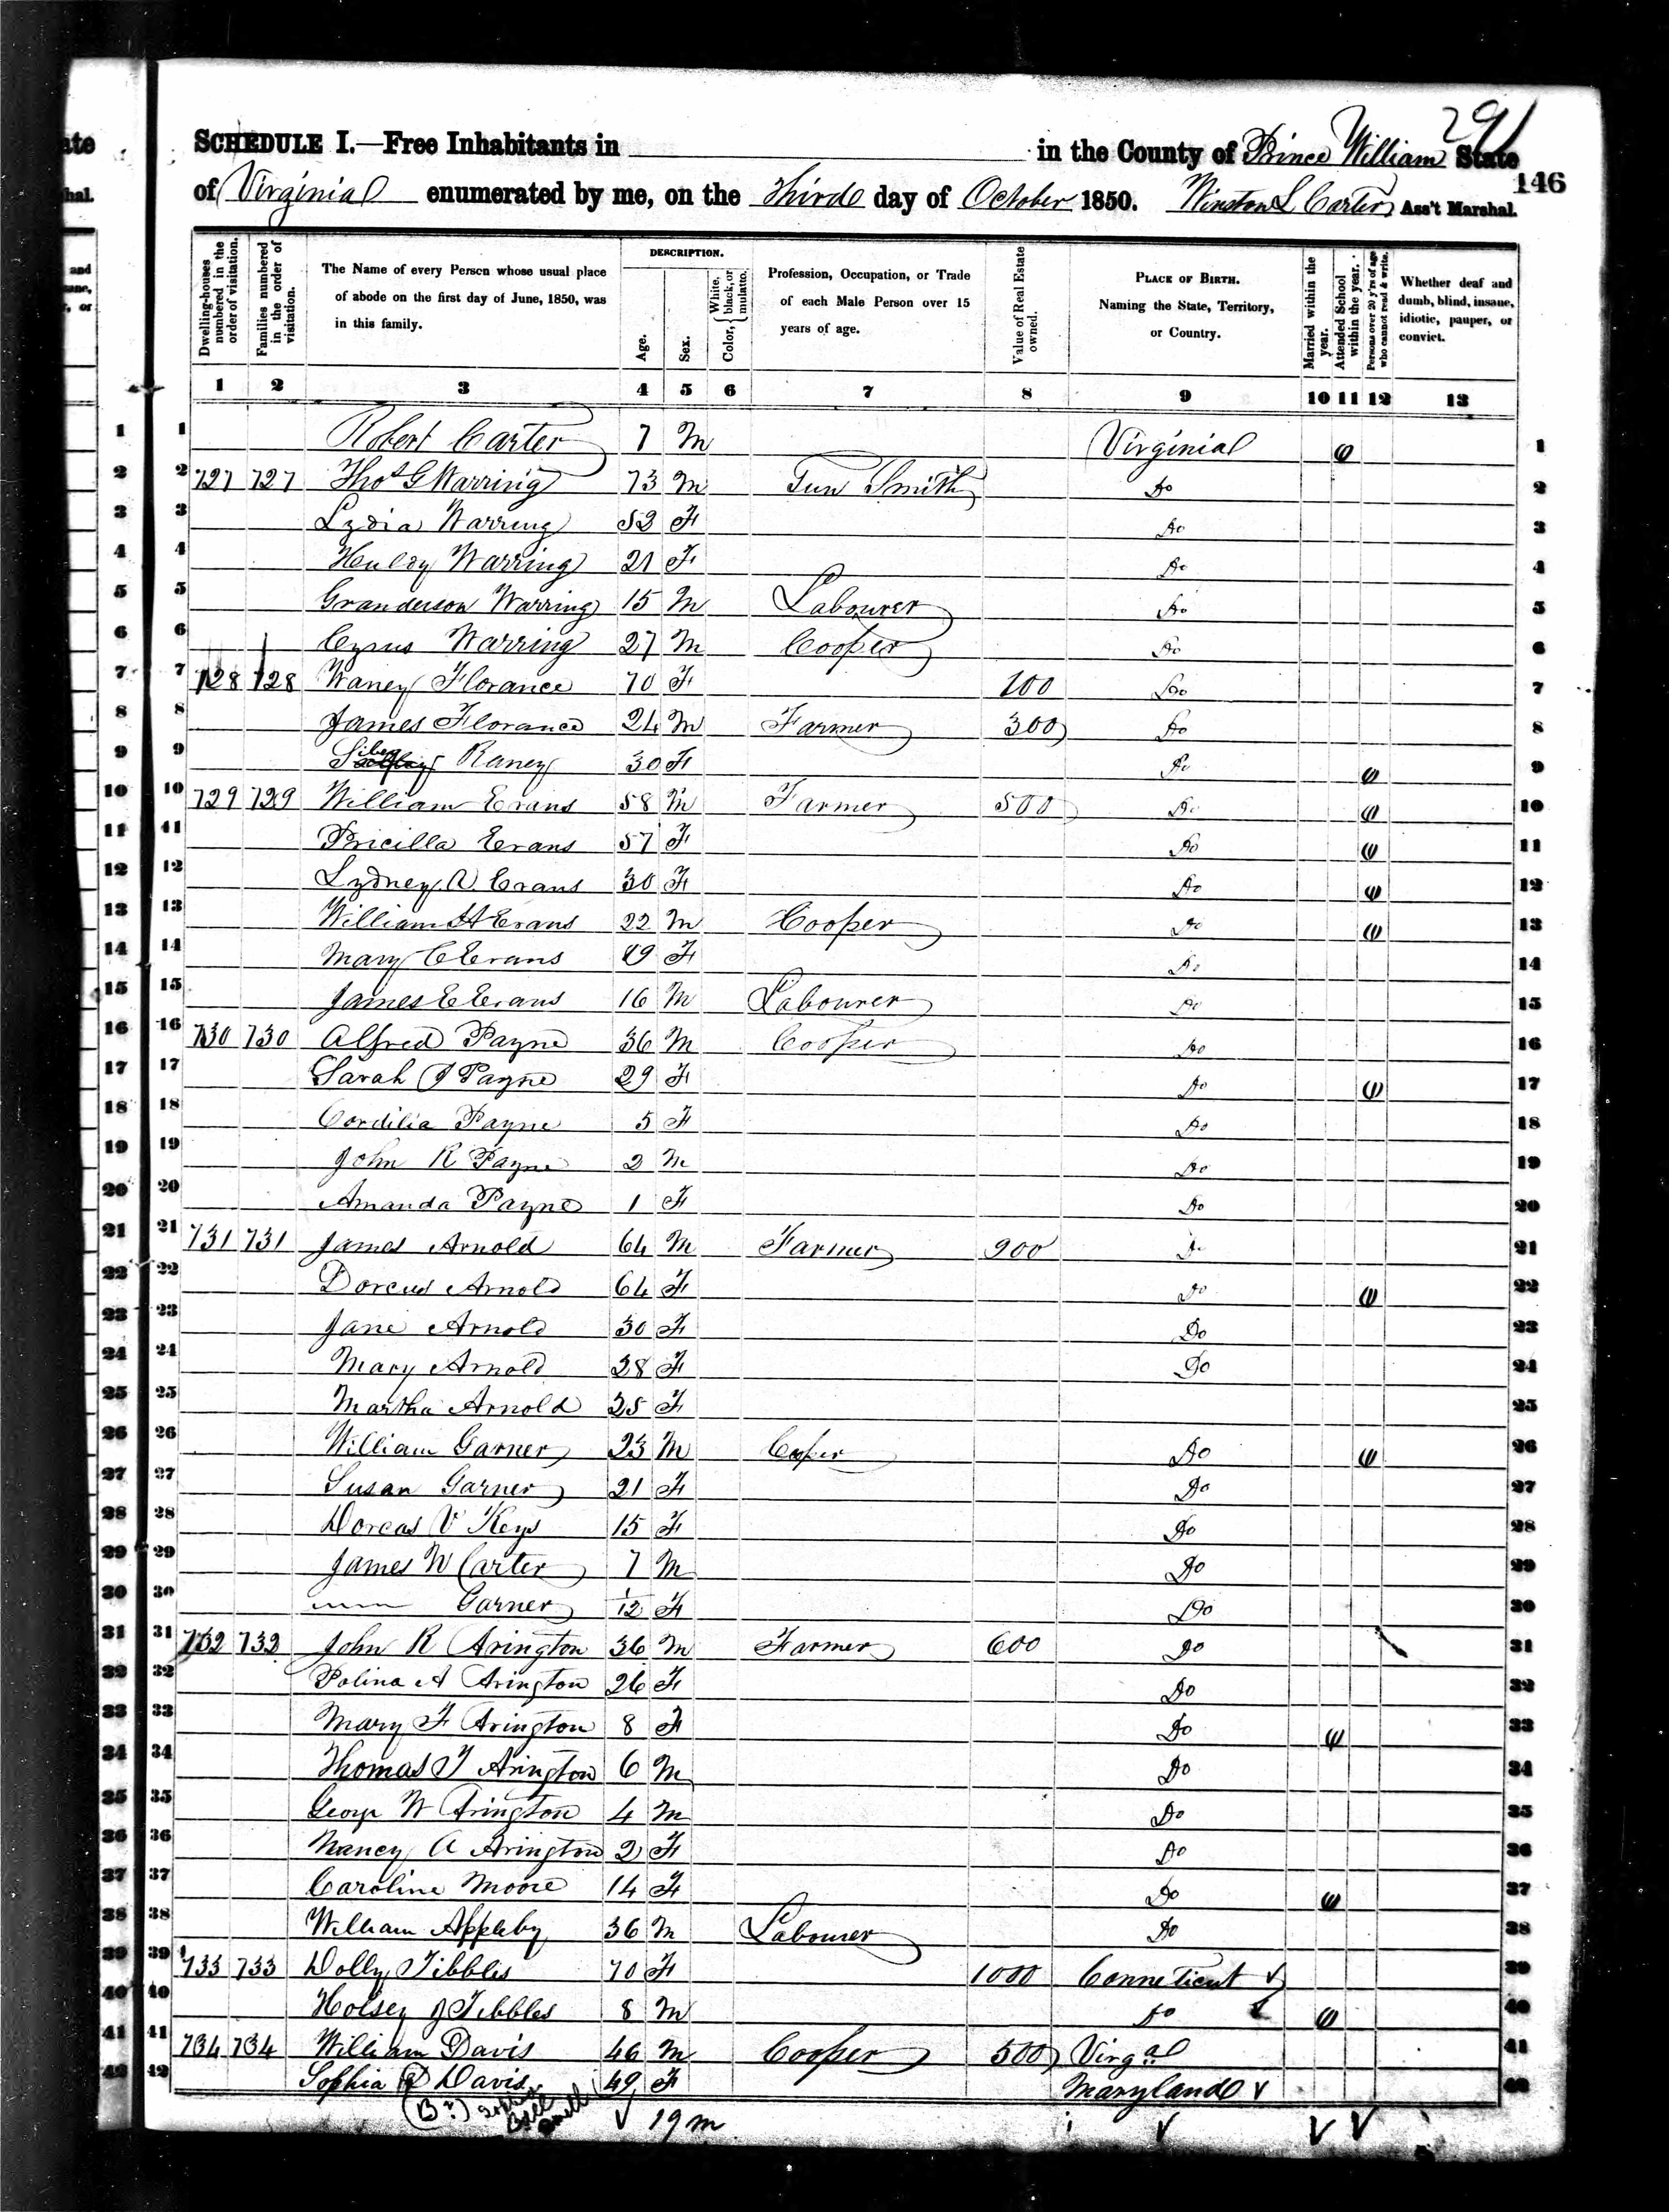 291
SCHEDULE I.—Free Inhabitants in in the County of Prince William State
146
of Virginia enumerated by me, on the Third day of October 1850. Winston L Carter Ass't Marshal.
Dwelling-houses numbered in the order of visitation.
Families numbered in the order of visitation.
The Name of every Person whose usual place of abode on the first day of June, 1850, was in this family.
DESCRIPTION.
Age.
Sex.
Color, White, black, or mulatto.
Profession, Occupation, or Trade of each Male Person over 15 years of age.
Value of Real Estate owned.
PLACE OF BIRTH. Naming the State, Territory, or Country.
Married within the year.
Attended School within the year.
Persons over 20 y'rs of age who cannot read & write.
Whether deaf and dumb, blind, insane, idiotic, pauper, or convict.
1 2 3 4 5 6 7 8 9 10 11 12 13
1 1 Robert Carter 7 M Virginia 1
2 2 727 727 Thos G Warring 73 M Gun Smith Do 2
3 3 Lydia Warring 52 F Do 3
4 4 Huldy Warring 21 F Do 4
5 5 Granderson Warring 15 M Labourer Do 5
6 6 Cyrus Warring 27 M Cooper Do 6
7 7 728 728 Florance 70 F 100 Do 7
8 8 James Florance 24 M Farmer 300 Do 8
9 9 Raney 30 F Do 9
10 10 729 729 William Evans 58 M Farmer 500 Do 10
11 11 Pricilla Evans 57 F Do 11
12 12 Lydney A Evans 30 F Do 12
13 13 William H Evans 22 M Cooper Do 13
14 14 Mary C Evans 19 F Do 14
15 15 James E Evans 16 M Labourer Do 15
16 16 730 730 Alfred Payne 36 M Cooper Do 16
17 17 Sarah J Payne 29 F Do 17
18 18 Cordilia Payne 5 F Do 18
19 19 John R Payne 2 M Do 19
20 20 Amanda Payne 1 F Do 20
21 21 731 731 James Arnold 64 M Farmer 900 Do 21
22 22 Dorcus Arnold 64 F Do 22
23 23 Jane Arnold 30 F Do 23
24 24 Mary Arnold 28 F Do 24
25 25 Martha Arnold 25 F 25
26 26 William Garner 23 M Cooper Do 26
27 27 Susan Garner 21 F Do 27
28 28 Dorcas V Keys 15 F Do 28
29 29 James W Carter 7 M Do 29
30 30 Garner 1/12 F Do 30
31 31 732 732 John R Arington 36 M Farmer 600 Do 31
32 32 Polina A Arington 26 F Do 32
33 33 Mary F Arington 8 F Do 33
34 34 Thomas T Arington 6 M Do 34
35 35 George W Arington 4 M Do 35
36 36 Nancy A Arington 2 F Do 36
37 37 Caroline Moore 14 F Do 37
38 38 William Appleby 36 M Labourer Do 38
39 39 733 733 Dolly Tibbles 70 F 1000 Conneticut 39
40 40 Holsey J Tibbles 8 M Do 40
41 41 734 734 William Davis 46 M Cooper 500 Virga 41
42 42 Sophia Davis 49 F Maryland 42
(B?)
19 M